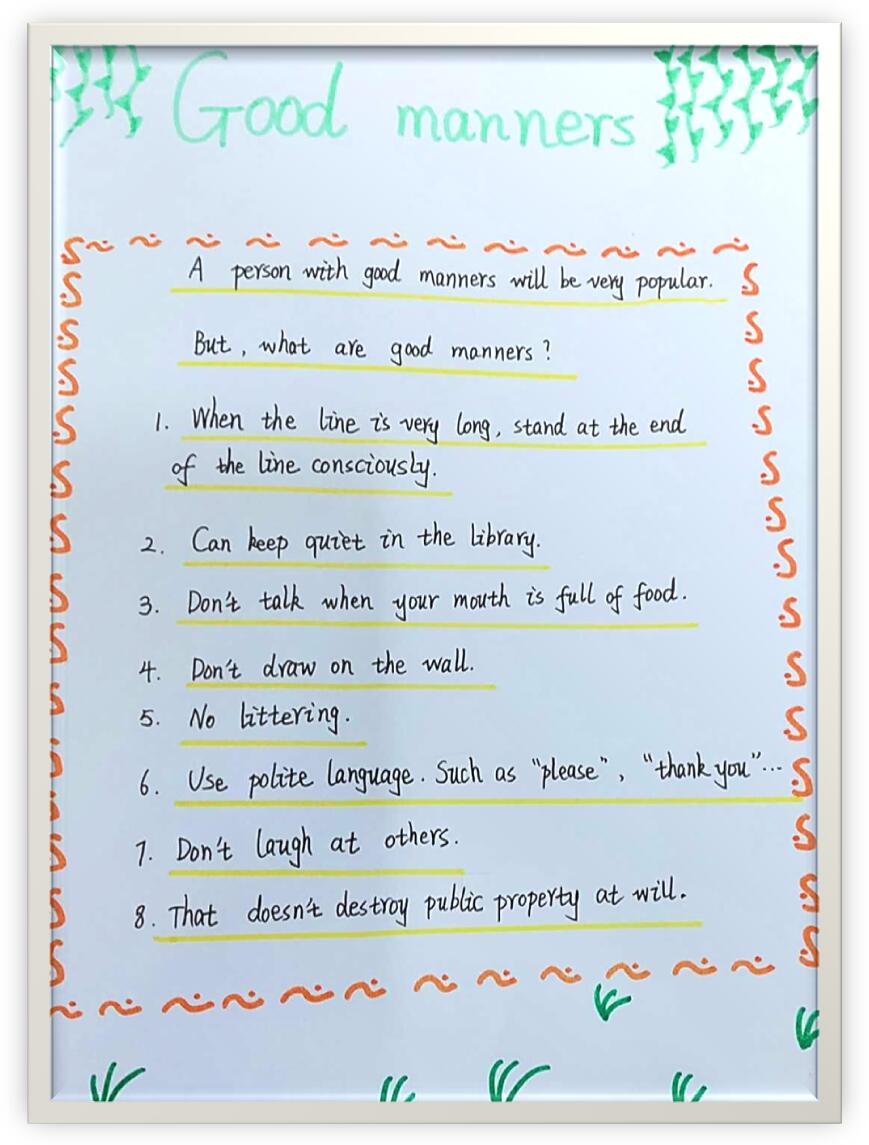 Good manners
A person with good manners will be very popular.
But, what are good manners?
1. When the line is very long, stand at the end
of the line consciously.
2. Can keep quiet in the library.
3. Don't talk when your mouth is full of food.
4. Don't draw on the wall.
5. No littering.
6. Use polite language. Such as "please", "thank you"...
7. Don't laugh at others.
8. That doesn't destroy public property at will.